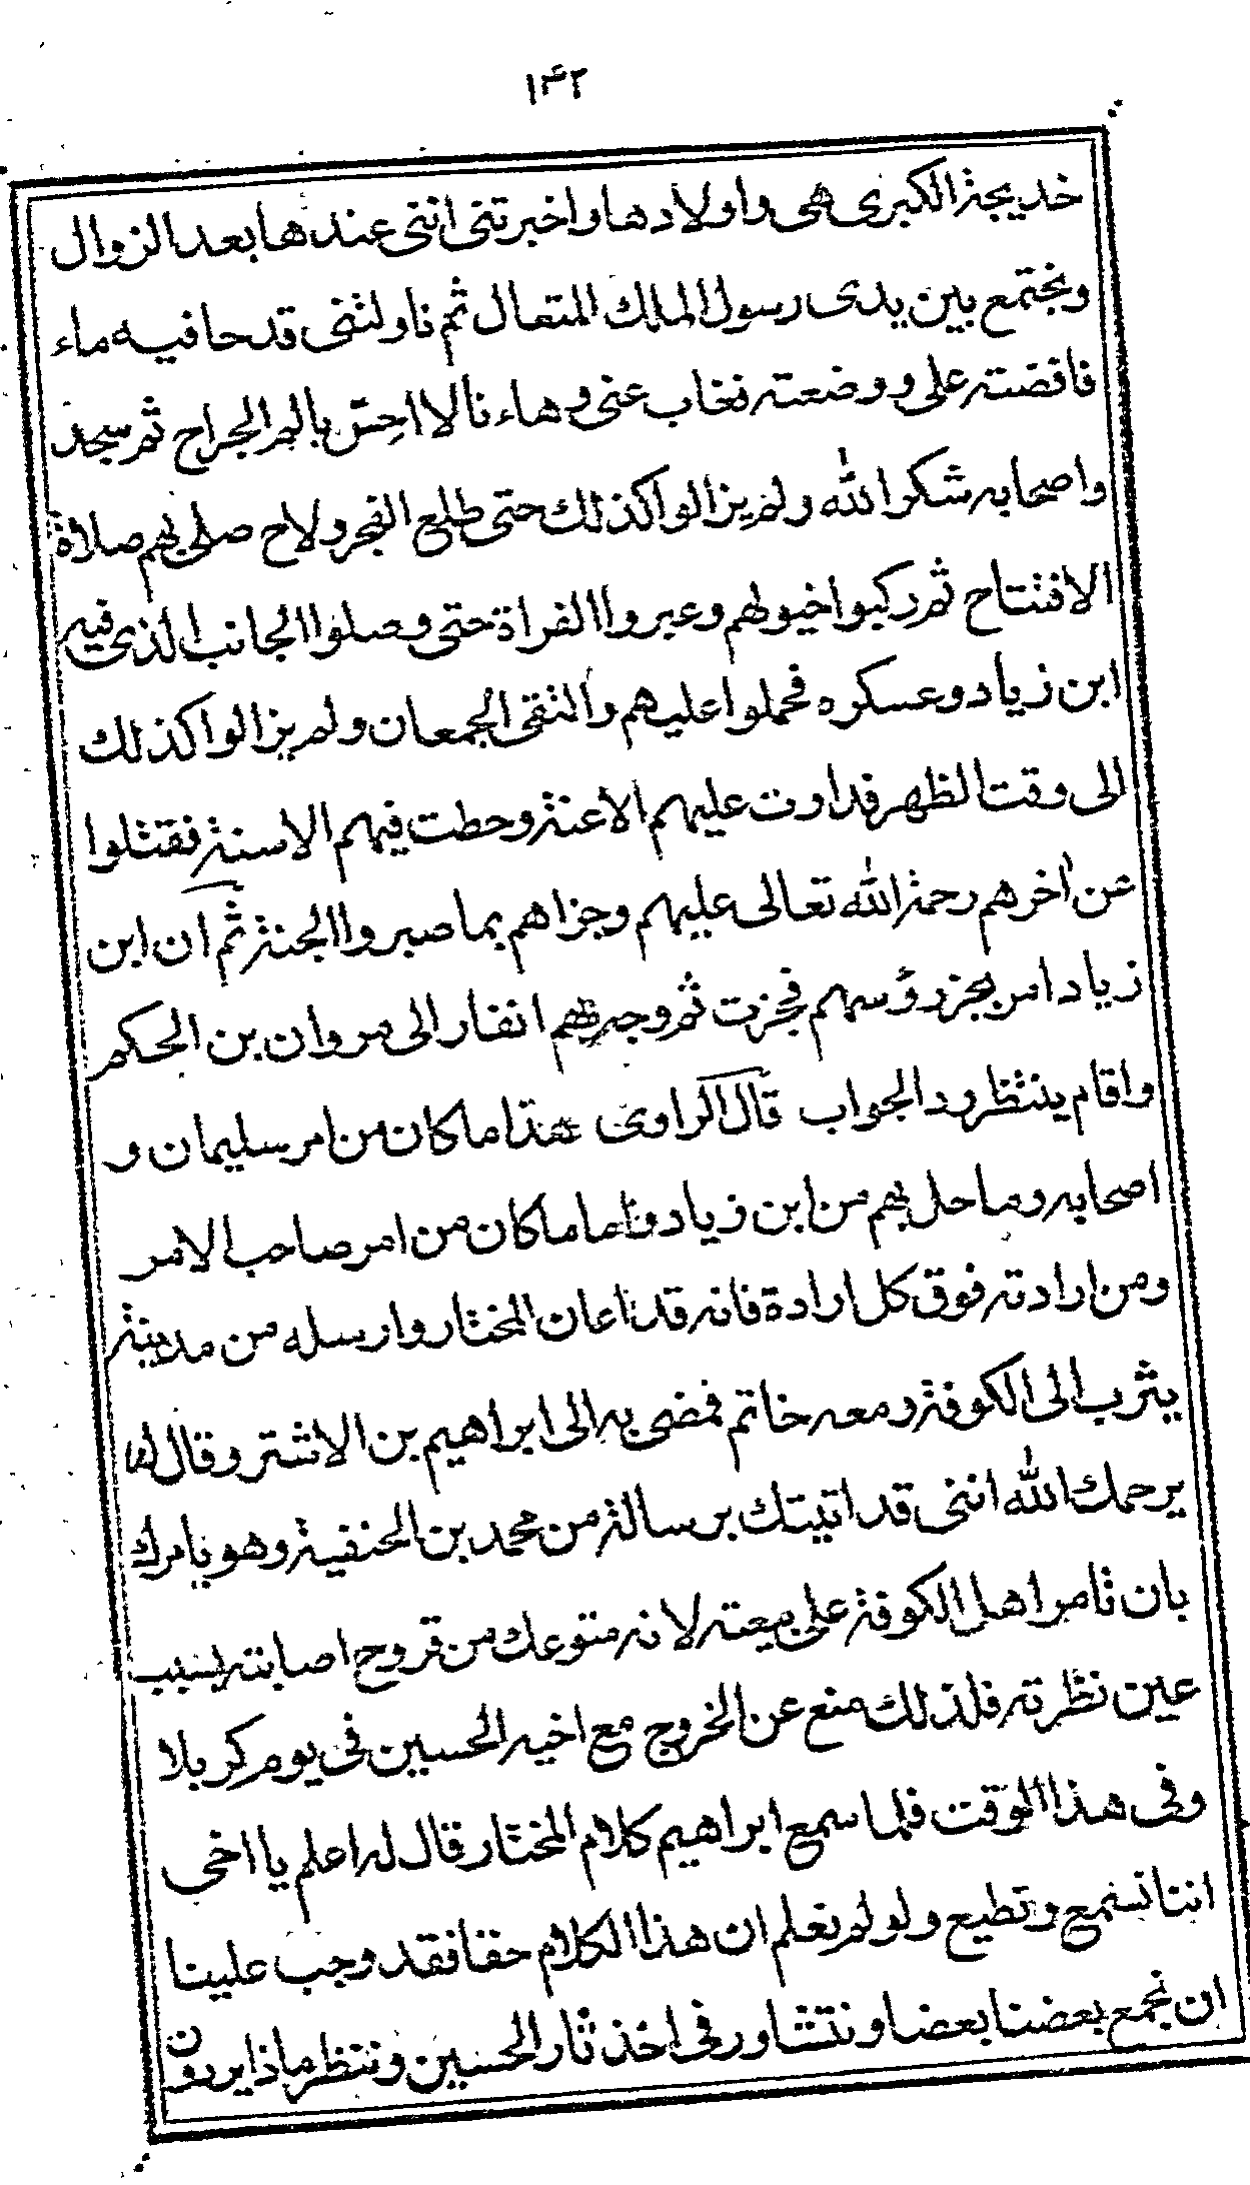 ١٤٢
خديجة الكبرى هى واولادها واخبرتنى اننى عندها بعد الزوال
ونجتمع بين يدى رسول الملك المتعال ثم ناولتنى قدحا فيه ماء
فافضته على ووضعته فغاب عنى وها انا لا احس بالم الجراح ثم سجد
واصحابه شكرا لله ولم يزالوا كذلك حتى طلع الفجر ولاح صلى بهم صلاة
الافتتاح ثم ركبوا خيولهم وعبروا الفراة حتى وصلوا الجانب الذى فيه
ابن زياد وعسكره فحملوا عليهم والتقى الجمعان ولم يزالوا كذلك
الى وقت الظهر فدارت عليهم الاعنة وحطت فيهم الاسنة فقتلوا
عن اخرهم رحمة الله تعالى عليهم وجزاهم بما صبروا الجنة ثم ان ابن
زياد امر بجز رؤسهم فجزت ثم وجه بهم انفار الى مروان بن الحكم
واقام ينتظر رد الجواب قال الراوى هذا ما كان من امر سليمان و
اصحابه وما حل بهم من ابن زياد واما ما كان من امر صاحب الامر
ومن ارادته فوق كل ارادة فانه قد اعان المختار وارسله من مدينة
يثرب الى الكوفة ومعه خاتم فمضى به الى ابراهيم بن الاشتر وقال له
يرحمك الله اننى قد اتيتك برسالة من محمد بن الحنفية وهو يامرك
بان تامر اهل الكوفة على بيعته لانه متوعك من قروح اصابته بسبب
عين نظرته فلذلك منع عن الخروج مع اخيه الحسين فى يوم كربلا
وفى هذا الوقت فلما سمع ابراهيم كلام المختار قال له اعلم يا اخى
اننا نسمع ونطيع ولو لم نعلم ان هذا الكلام حقا فقد وجب علينا
ان نجمع بعضنا بعضا ونتشاور فى اخذ ثار الحسين وننتظر ماذا يردون